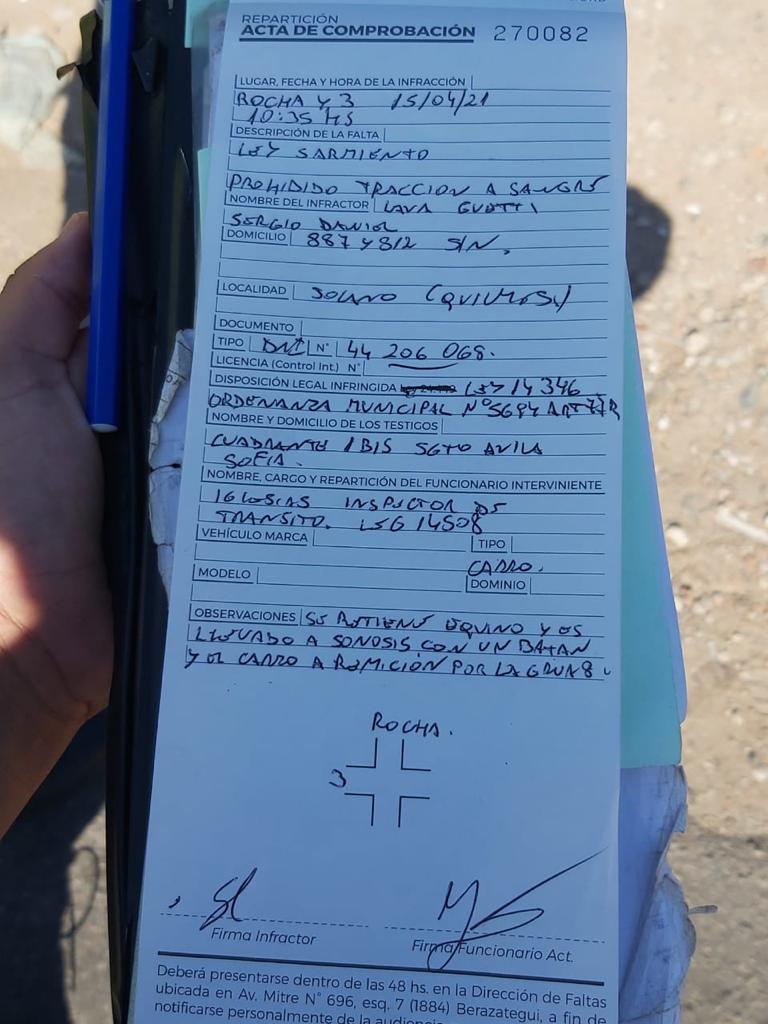 REPARTICIÓN
ACTA DE COMPROBACIÓN 270082
LUGAR, FECHA Y HORA DE LA INFRACCIÓN
ROCHA Y 3 15/04/21
10:35 HS
DESCRIPCIÓN DE LA FALTA
LEY SARMIENTO
PROHIDIDO TRACCION A SANGRE
NOMBRE DEL INFRACTOR LAVA GUETTI
SERGIO DANIEL
DOMICILIO 887 Y 812 S/N.
LOCALIDAD SOLANO (QUILMES)
DOCUMENTO
TIPO DNI N° 44 206 068.
LICENCIA (Control Int.) N°
DISPOSICIÓN LEGAL INFRINGIDA LEY 14346
ORDENANZA MUNICIPAL Nº 5694 ART
NOMBRE Y DOMICILIO DE LOS TESTIGOS
CUADRANTE 1 BIS SGTO AVILA
SOFIA.
NOMBRE, CARGO Y REPARTICIÓN DEL FUNCIONARIO INTERVINIENTE
IGLESIAS INSPECTOR DE
TRANSITO. LEG 14508
VEHÍCULO MARCA TIPO
CARRO.
MODELO DOMINIO
OBSERVACIONES SE RETIENE EQUINO Y ES
LLEVADO A SENESIS CON UN BATAN
Y EL CARRO A REMICIÓN POR LA GRUA 8.
ROCHA.
3
Firma Infractor Firma Funcionario Act.
Deberá presentarse dentro de las 48 hs. en la Dirección de Faltas
ubicada en Av. Mitre N° 696, esq. 7 (1884) Berazategui, a fin de
notificarse personalmente de la